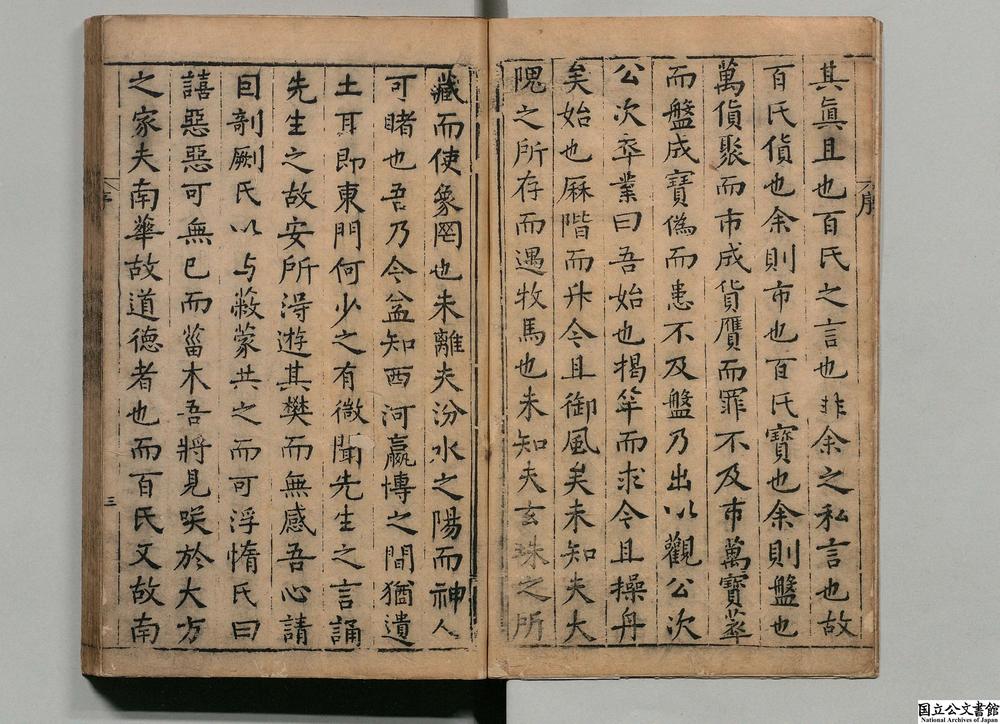 其眞且也百氏之言也非余之私言也故
百氏貨也余則市也百氏寶也余則盤也
萬貨聚而市成貨贋而罪不及市萬寶萃
而盤成寶偽而恚不及盤乃出以觀公次
公次卒業曰吾始也揭竿而求今且操丹
矣始也厤階而升今且御風矣未知夫大
隗之所存而遇牧馬也未知夫玄珠之所
序
藏而使象罔也未離夫汾水之陽而神人
可睹也吾乃今益知西河嬴博之間猶遺
土耳即東門何少之有微聞先生之言誦
先生之故安所淂遊其樊而無感吾心請
目剞劂氏以与蔽蒙共之而可浮惰氏曰
譆惡惡可無已而菑木吾將見咲於大方
之家夫南華故道德者也而百氏又故南
序
三
国立公文書館
National Archives of Japan